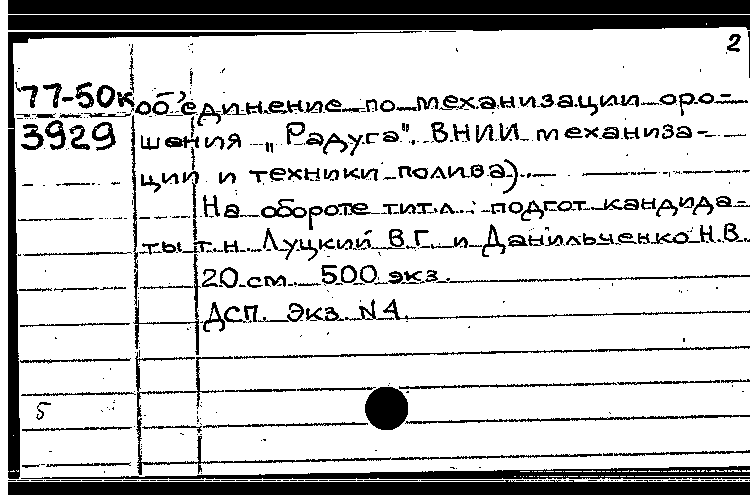 2
77-50к объединение по механизации оро-
3929 шения „Радуга". ВНИИ механиза-
ции и техники полива).
На обороте тит.л.: подгот. кандида-
ты т.н. Луцкий В.Г. и Данильченко Н.В.
20 см. 500 экз.
ДСП. Экз. N4.
5